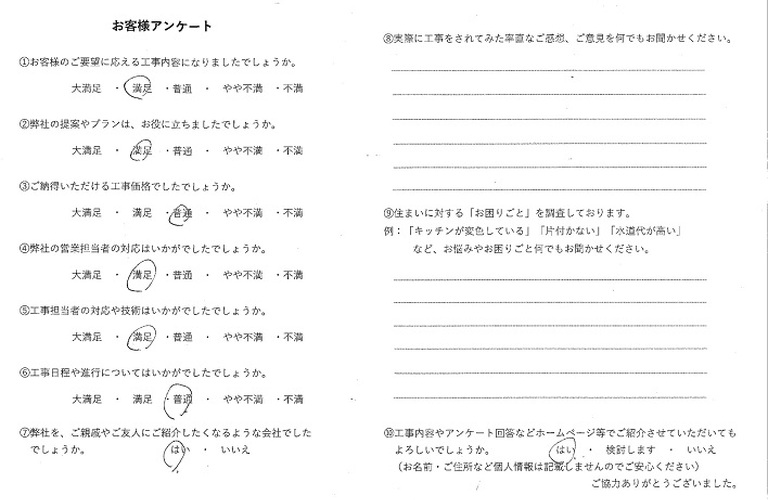 お客様アンケート
①お客様のご要望に応える工事内容になりましたでしょうか。
大満足 ・ 満足 ・普通 ・ やや不満 ・不満
②弊社の提案やプランは、お役に立ちましたでしょうか。
大満足 ・ 満足 ・普通 ・ やや不満 ・不満
③ご納得いただける工事価格でしたでしょうか。
大満足 ・ 満足 ・普通 ・ やや不満 ・不満
④弊社の営業担当者の対応はいかがでしたでしょうか。
大満足 ・ 満足 ・普通 ・ やや不満 ・不満
⑤工事担当者の対応や技術はいかがでしたでしょうか。
大満足 ・ 満足 ・普通 ・ やや不満 ・不満
⑥工事日程や進行についてはいかがでしたでしょうか。
大満足 ・ 満足 ・普通 ・ やや不満 ・不満
⑦弊社を、ご親戚やご友人にご紹介したくなるような会社でした
でしょうか。 はい ・ いいえ
⑧実際に工事をされてみた率直なご感想、ご意見を何でもお聞かせください。
⑨住まいに対する「お困りごと」を調査しております。
例：「キッチンが変色している」「片付かない」「水道代が高い」
など、お悩みやお困りごと何でもお聞かせください。
⑩工事内容やアンケート回答などホームページ等でご紹介させていただいても
よろしいでしょうか。 はい ・ 検討します ・ いいえ
（お名前・ご住所など個人情報は記載しませんのでご安心ください）
ご協力ありがとうございました。